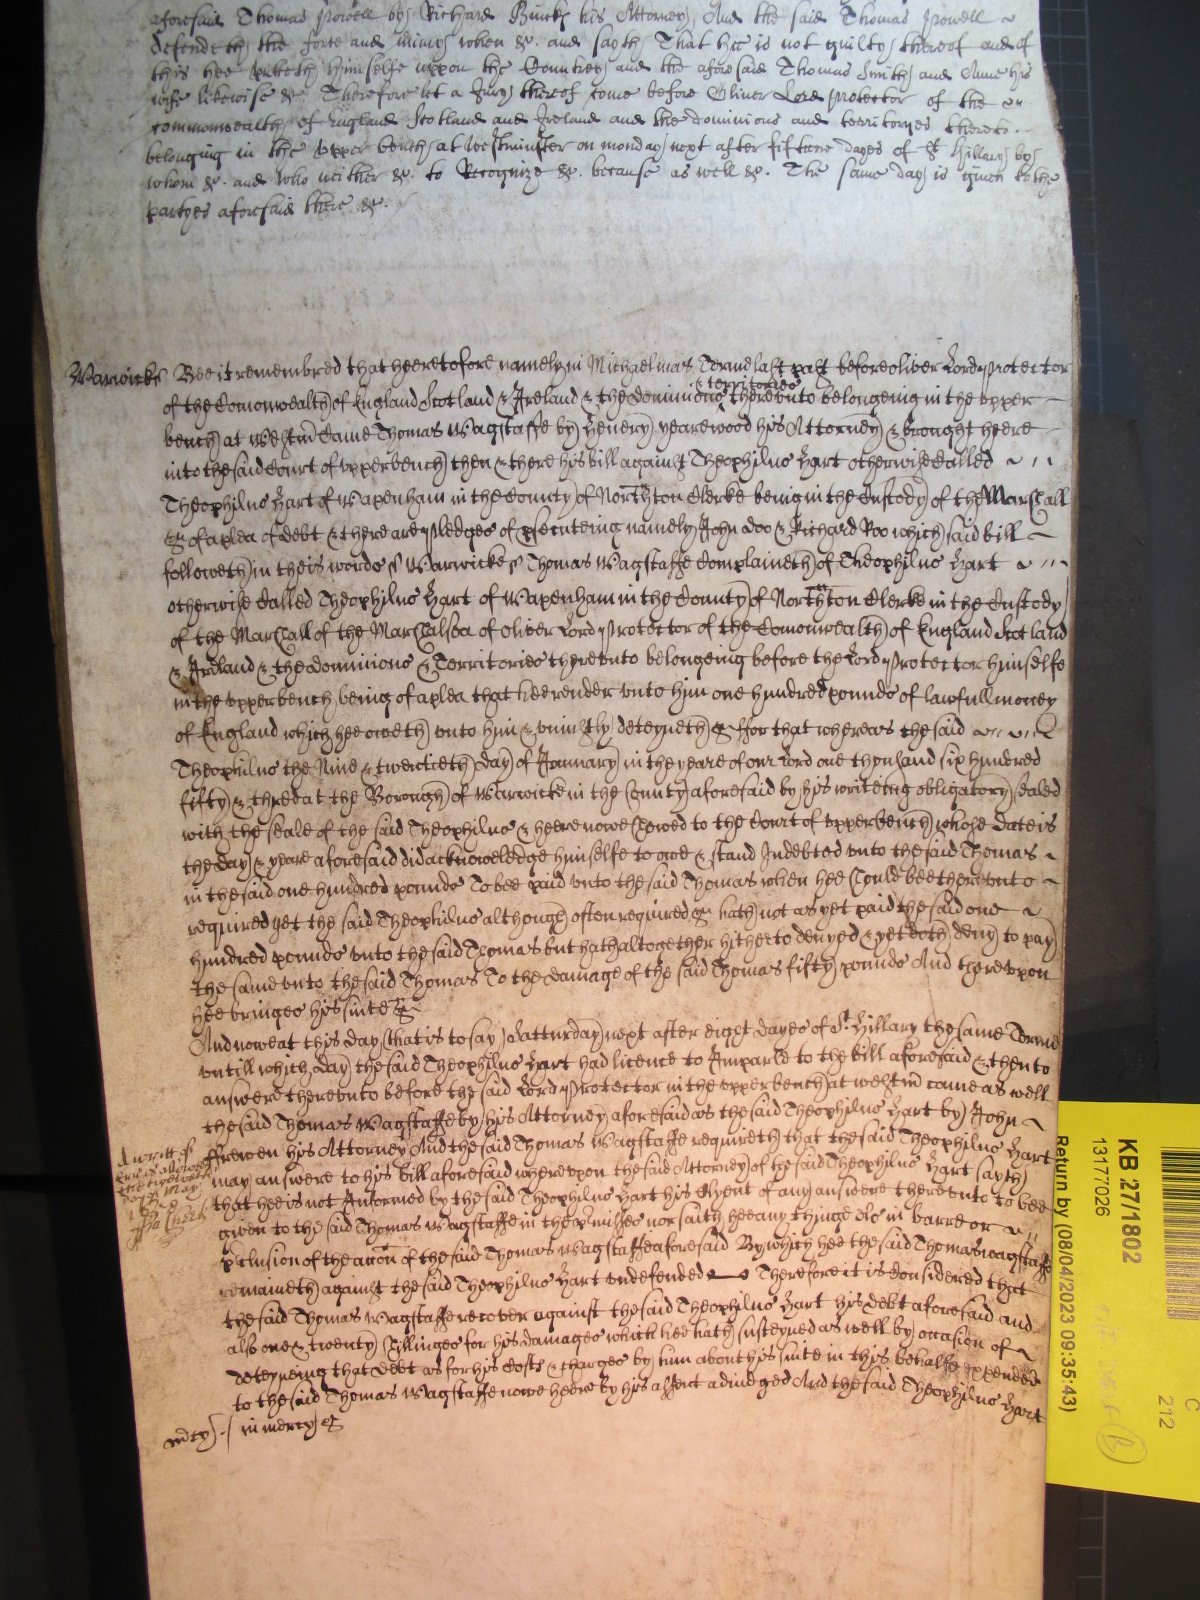 aforesaid Thomas Powell by Richard his Attorney, And the said Thomas Powell ~
defendeth the force and iniury when &c. and sayth That hee is not guilty thereof and of
this hee putteth himselfe uppon the Countrey and the aforesaid Thomas Smith and Anne his
wife likewise &c. Therefore let a Jury thereof come before Oliver Lord Protector of the
commonwealth of England Scotland and Ireland and the dominions and territoryes thereto
belonging in the upper bench at Westminster on monday next after fifteene dayes of St Hillary by
whom &c. and who neither &c. to Recognize &c. because as well &c. The same day is given to the
partyes aforesaid there &c.
Warwicks Bee it remembred that heeretofore namely in Michaelmas Terme last past before oliver Lord Protector
& territories
of the Comonwealth of England Scotland & Ireland & the dominions thereunto belongeing in the upper
bench at Westm Came Thomas Wagstaffe by Henery yearewood his Attorney & brought heere
into the said Court of upper bench then & there his bill against Theophilus Hart otherwise Called ~
Theophilus Hart of Wapenham in the County of Northton Clerke being in the Custody of the Marshall
&c of a plea of debt & there are pledges of psecuteing namely John Doo & Richard Roo which said bill ~
followeth in theis words ss Warwicke ss Thomas Wagstaffe Complaineth of Theophilus Hart
otherwise Called Theophilus Hart of Wapenham in the County of Northton Clerke in the Custody
of the Marshall of the Marshalsea of oliver Lord Protector of the Comonwealth of England Scotland
& Ireland & the dominions & Territories thereunto belongeing before the Lord Protector himselfe
in the upper bench being of a plea that hee render unto him one hundred pounds of lawfull money
of England which hee oweth unto him & uniustly deteyneth &c ffor that whereas the said
Theophilus the Nine & twentieth day of January in the yeare of our Lord one thousand six hundred
fifty & three at the Borough of Warwicke in the County aforesaid by his writeing obligatory Sealed
with the seale of the said Theophilus & heere nowe shewed to the Court of upper bench whose date is
the day & yeare aforesaid did acknowledge himselfe to owe & stand Indebted unto the said Thomas ~
in the said one hundred pounds To bee paid unto the said Thomas when hee should bee thereunto ~
required yet the said Theophilus although often required &c hath not as yet paid the said one ~
hundred pounds unto the said Thomas but hath altogether hitherto denyed & yet doth deny to pay
the same unto the said Thomas To the damage of the said Thomas fifty pounds And thereupon
hee bringes his suite &c
And nowe at this day that is to say Satturday next after eight dayes of St Hillary the same Terme
untill which day the said Theophilus Hart had licence to Imparle to the bill aforesaid & then to
answere thereunto before the said Lord Protector in the upper bench at westm came as well
the said Thomas Wagstaffe by his Attorney aforesaid as the said Theophilus Hart by John ~
ffrewen his Attorney And the said Thomas Wagstaffe requireth that the said Theophilus Hart
may answere to his bill aforesaid whereupon the said Attorney of the said Theophilus Hart sayth
that hee is not Informed by the said Theophilus Hart his Clyent of any answere thereunto to bee
given to the said Thomas Wagstaffe in the pmisses nor saith hee any thinge els in barre or ~
pclusion of the accon of the said Thomas Wagstaffe aforesaid By which hee the said Thomas wagstaffe
remaineth against the said Theophilus Hart undefended Therefore it is Considered that
the said Thomas Wagstaffe recover against the said Theophilus Hart his debt aforesaid and
also one & twenty shillinges for his damages which hee hath susteyned as well by occasion of ~
deteyneing that debt as for his Costs & charges by him about his suite in this behalfe expended
to the said Thomas Wagstaffe nowe heere by his assent adiudged And the said Theophilus Hart
mcy in mercy &c
A writt of
KB 27/1802
13177026
Return by (08/04/2023 09:35:43)
C
212